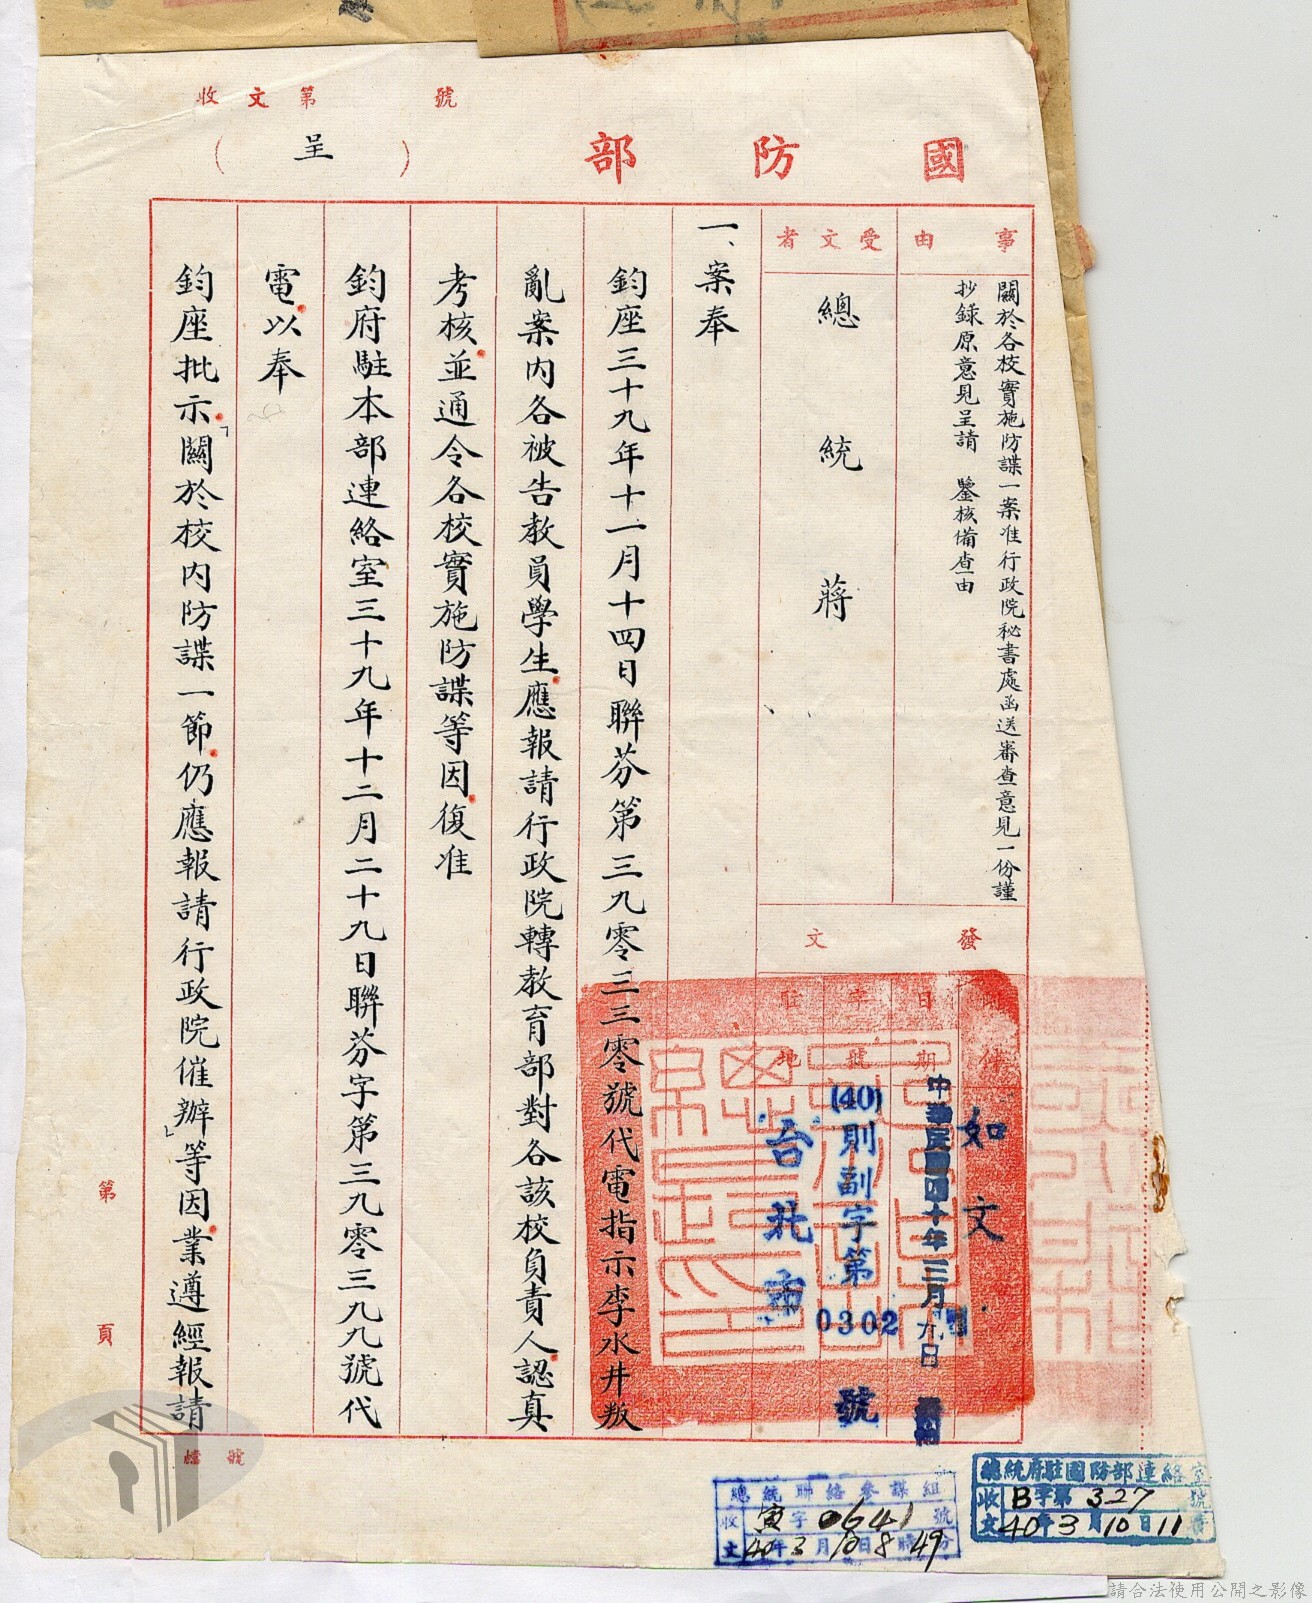 收文第 號
國防部
(呈)
事由
關於各校實施防諜一案准行政院秘書處函送審查意見一份謹
抄錄原意見呈請 鑒核備查由
受文者
總統 蔣
發文
附件
如文
日期
中華民國四十年三月九日
字號
(40)則副字第0302號
駐地
台北市
一、案奉
鈞座三十九年十一月十四日聯芬第三九零三三零號代電指示李水井叛
亂案內各被告教員學生應報請行政院轉教育部對各該校負責人認真
考核並通令各校實施防諜等因復准
鈞府駐本部連絡室三十九年十二月二十九日聯芬字第三九零三九九號代
電以奉
鈞座批示「關於校內防諜一節仍應報請行政院催辦」等因業遵經報請
第 頁
檔號
總統府駐國防部連絡室
收文 B字第327號
40年3月10日11
總統聯絡參謀組
收文 寅字0641號
40年3月10日8時49分
請合法使用公開之影像